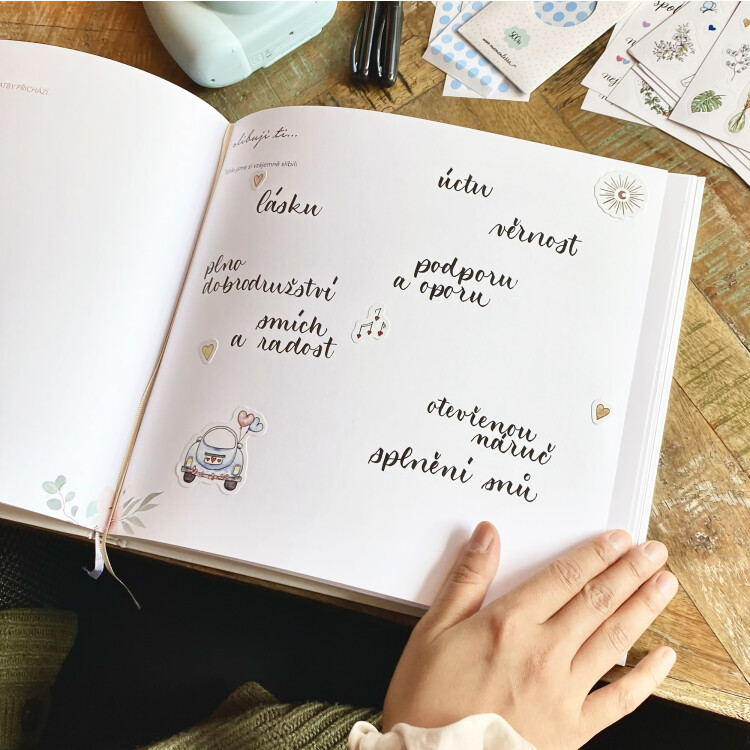 slibuji ti...
jsme si vzájemně slíbili
lásku
úctu
věrnost
plno
dobrodružství
podporu
a oporu
smích
a radost
otevřenou
náruč
splnění snů